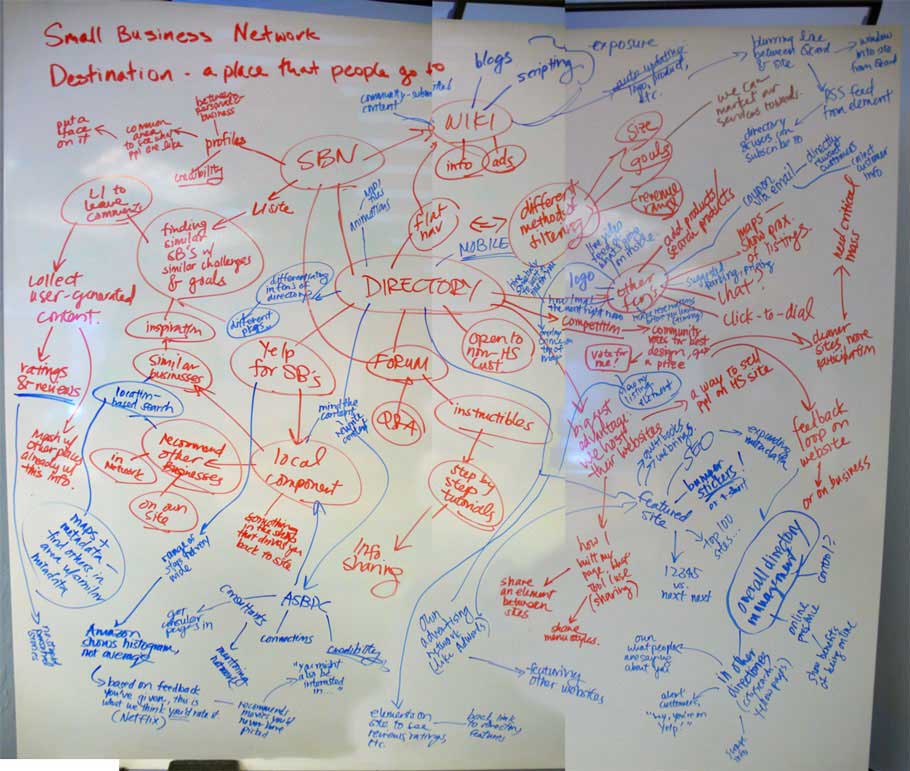 Small Business Network
Destination - a place that people go to
blogs
scripting
exposure
auto updating
logo, product,
etc.
blurring line
between Qcard
& site
window
into site
from Qcard
RSS feed
from element
directory
& users can
subscribe to
we can
market our
services towards
community-submitted
content
WIKI
info
ads
put a
face
on it
common
area
to see what
ppl are like
between
personal &
business
profiles
credibility
SBN
LI to
leave
comments
LI site
finding
similar
SB's w/
similar challenges
& goals
animations
flat
nav
MOBILE
different
methods of
filtering
size
goals
revenue
range
add products/
search products
coupon
via
email
directly
customers
select
customer
info
need critical
mass
maps -
show prox.
of listings
chat?
click-to-dial
logo
other
func.
DIRECTORY
differentiating
in terms of
directory
different
pages
collect
user-generated
content
inspiration
similar
businesses
ratings
& reviews
location-
based search
Yelp
for SB's
FORUM
Q&A
open to
non-HS
cust.
competition
community
votes for best
design, get
a prize
vote for
me!
cleaner
sites, more
participation
instructibles
step by
step
tutorials
info
sharing
mind the
content
rewrite
content
biggest
advantage:
we host
their websites
a way to sell
ppl on HS site
feedback
loop on
website
or on business
mash w/
other places
already w/
this info.
recommend
other
businesses
in network
on our
site
local
component
something
in the shops
that drives you
back to site
maps +
metadata -
find others in
area w/ similar
metadata
SEO
expanding
metadata
bumper
stickers!
or t-shirt
featured
site
top 100
sites...
12345
vs.
next next
overall directory
management
control!?
online
presence
show benefits
of being online
in other
directories
(citysearch,
yellow pages)
own
what people
are saying
about you
alert
customers,
"hey, you're on
Yelp!"
share
info
how I
built my
page, about
tool (use
(sharing)
share
an element
between
sites
share
menu styles.
ASBDC
consultants
connections
credibility
get
circular
pages in
mentoring
network
Amazon
shows histogram,
not average
based on feedback
you've given, this is
what we think you'd rate it
(Netflix)
recommend
movies you'd
never have
picked
"you might
also be
interested
in..."
own
advertising
network
(like Adwords)
featuring
other websites
element on
site to see
reviews, ratings,
etc.
back link
to directory
features